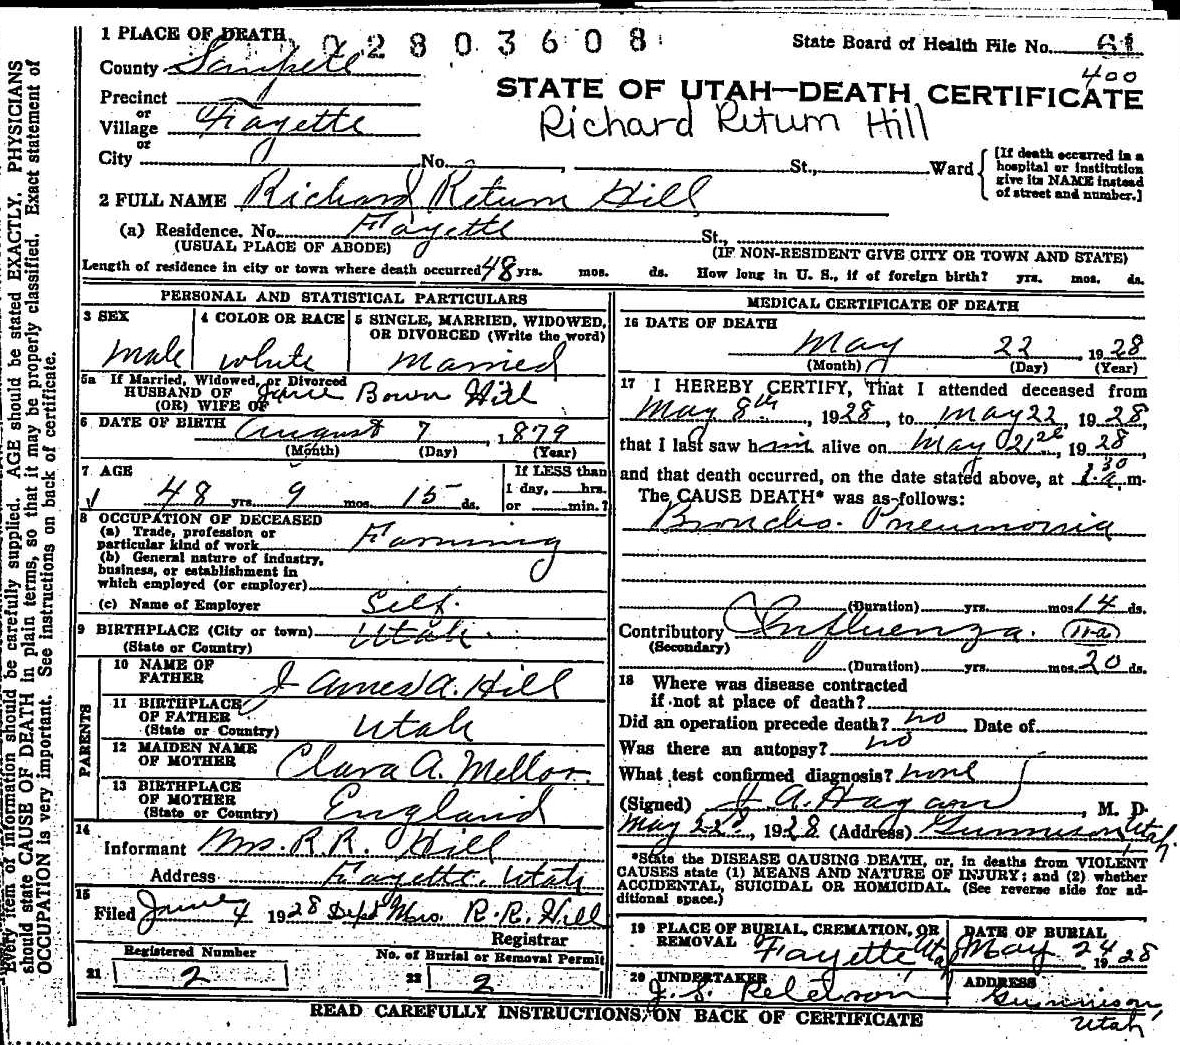 1 PLACE OF DEATH
02803608
State Board of Health File No. 61
400
County Sanpete
Precinct
or
Village Fayette
or
City No. St., Ward
STATE OF UTAH—DEATH CERTIFICATE
Richard Return Hill
[If death occurred in a
hospital or institution
give its NAME instead
of street and number.]
2 FULL NAME Richard Return Hill
(a) Residence. No. Fayette St.,
(USUAL PLACE OF ABODE) (IF NON-RESIDENT GIVE CITY OR TOWN AND STATE)
Length of residence in city or town where death occurred 48 yrs. mos. ds. How long in U. S., if of foreign birth? yrs. mos. ds.
PERSONAL AND STATISTICAL PARTICULARS
3 SEX 4 COLOR OR RACE 5 SINGLE, MARRIED, WIDOWED,
OR DIVORCED (Write the word)
Male White Married
5a If Married, Widowed, or Divorced
HUSBAND OF
(OR) WIFE OF Bown Hill
6 DATE OF BIRTH August 7, 1879
(Month) (Day) (Year)
7 AGE If LESS than
1 day, hrs.
48 yrs. 9 mos. 15 ds. or min.?
8 OCCUPATION OF DECEASED
(a) Trade, profession or
particular kind of work Farming
(b) General nature of industry,
business, or establishment in
which employed (or employer)
(c) Name of Employer Self.
9 BIRTHPLACE (City or town) Utah.
(State or Country)
PARENTS
10 NAME OF
FATHER James A. Hill
11 BIRTHPLACE
OF FATHER
(State or Country) Utah
12 MAIDEN NAME
OF MOTHER Clara A. Mellor
13 BIRTHPLACE
OF MOTHER
(State or Country) England
14
Informant Mrs. R. R. Hill
Address Fayette, Utah
15
Filed June 4 1928 Dept Mrs. R. R. Hill
Registrar
Registered Number No. of Burial or Removal Permit
21 2 22 2
MEDICAL CERTIFICATE OF DEATH
16 DATE OF DEATH
May 22, 1928
(Month) (Day) (Year)
17 I HEREBY CERTIFY, That I attended deceased from
May 8th, 1928, to May 22, 1928,
that I last saw him alive on May 21st, 1928,
and that death occurred, on the date stated above, at 1.30 a.m.
The CAUSE DEATH* was as follows:
Broncho. Pneumonia
(Duration) yrs. mos. 14 ds.
Contributory Influenza. 11a
(Secondary)
(Duration) yrs. mos. 20 ds.
18 Where was disease contracted
if not at place of death?
Did an operation precede death? no Date of
Was there an autopsy? no
What test confirmed diagnosis? none
(Signed) J. A. Hagan, M. D.
May 22d, 1928 (Address) Gunnison, Utah.
*State the DISEASE CAUSING DEATH, or, in deaths from VIOLENT
CAUSES state (1) MEANS AND NATURE OF INJURY; and (2) whether
ACCIDENTAL, SUICIDAL OR HOMICIDAL. (See reverse side for ad-
ditional space.)
19 PLACE OF BURIAL, CREMATION, OR
REMOVAL Fayette, Utah
DATE OF BURIAL
May 24 1928
20 UNDERTAKER
J. S.
ADDRESS
Gunnison,
Utah
READ CAREFULLY INSTRUCTIONS, ON BACK OF CERTIFICATE
Every item of information should be carefully supplied. AGE should be stated EXACTLY. PHYSICIANS
should state CAUSE OF DEATH in plain terms, so that it may be properly classified. Exact statement of
OCCUPATION is very important. See instructions on back of certificate.